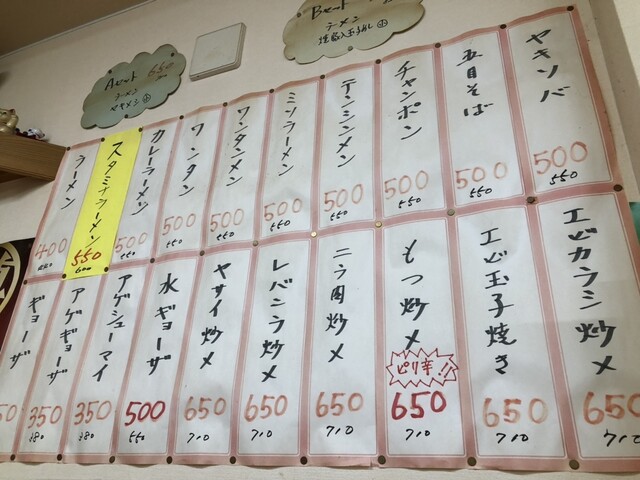 Aセット 650
ラーメン
ヤキメシ㊥
Bセット
ラーメン
ヤキソバ
500
550
五目そば
500
550
チャンポン
500
550
テンシンメン
500
550
ミソラーメン
500
550
ワンタンメン
500
550
ワンタン
500
550
カレーラーメン
500
550
スタミナラーメン
550
600
ラーメン
400
エビカラシ炒メ
650
710
エビ玉子焼き
650
710
もつ炒メ
ピリ辛!!
650
710
ニラ肉炒メ
650
710
レバニラ炒メ
650
710
ヤサイ炒メ
650
710
水ギョーザ
500
550
アゲシューマイ
350
380
アゲギョーザ
350
380
ギョーザ